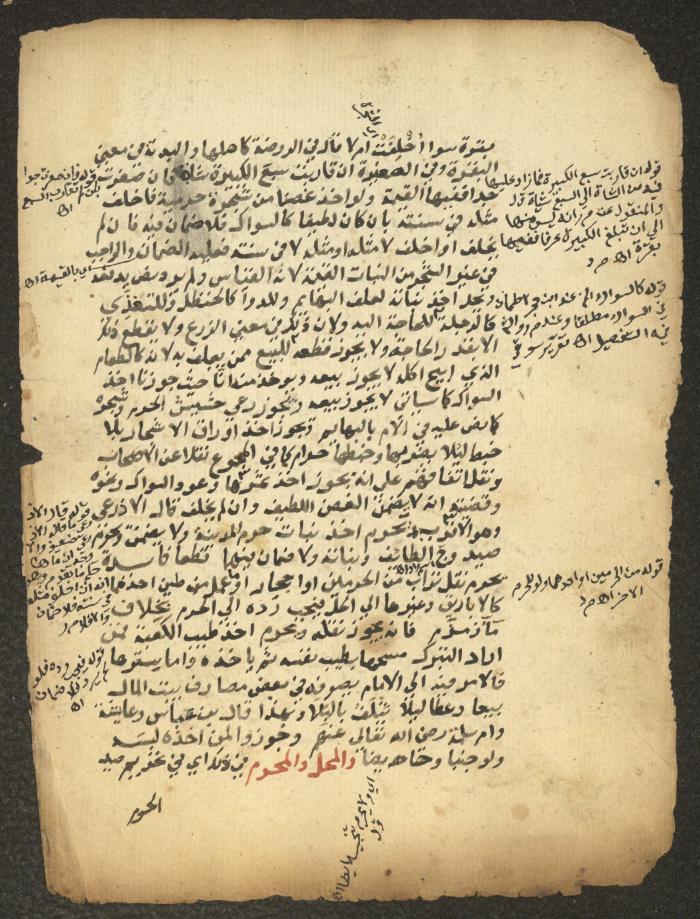 بقرة سوا أخلفت ام لا قاله في الروضة كاصلها والبدنة في معني
البقرة وفي الصغيرة ان قاربت سبع الكبيرة شاة فان صغرت
جدا ففيها القيمة ولو اخذ غصنا من شجرة حرمية فاخلف
مثله في سنته بان كان لطيفا كالسواك فلا ضمان فيه فان لم
يخلف او اخلف لا مثله او مثله لا في سنته فعليه الضمان والواجب
في غير الشجر من النبات القيمة لانه القياس ولم يرد نص يدفعه
ويحل اخذ نباته لعلف البهايم وللدوا كالحنظل وللتغذي
كالرجلة للحاجة اليه ولان ذلك في معني الزرع ولا يقطع لذلك
الا بقدر الحاجة ولا يجوز قطعه للبيع ممن يعلف به لانه كالطعام
الذي ابيح اكله لا يجوز بيعه ويوخذ منه انا حيث جوزنا اخذ
السواك كما سياتي لا يجوز بيعه ويجوز رعي حشيش الحرم وشجره
كما نص عليه في الام بالبهايم ويجوز اخذ اوراق الاشجار بلا
خبط ليلا يضر بها وخبطها حرام كما في المجموع نقلا عن الاصحاب
ونقل اتفاقهم علي انه يجوز اخذ ثمرها وعود السواك ونحوه
وقضيته انه لا يضمن الغصن اللطيف وان لم يخلف قال الاذرعي
وهو الاقرب ويحرم اخذ نبات حرم المدينة ولا يضمن ويحرم
صيد وج الطائف ونباته ولا ضمان فيهما قطعا فايدة
يحرم نقل تراب من الحرمين او احجار او عمل من طين احدهما
كالاباريق وغيرها الي الحل فيجب رده الي الحرم بخلاف
ما زمزم فانه يجوز نقله ويحرم اخذ طيب الكعبة فمن
اراد التبرك مسحها بطيب نفسه ثم ياخذه واما سترها
فالامر فيه الي الامام يصرفه في بعض مصارف بيت المال
بيعا وعطا ليلا تتلف بالبلا وبهذا قال ابن عباس وعايشة
وام سلمة رضي الله تعالي عنهم وجوزوا لمن اخذه لبسه
ولو جنبا وحايضا والمحل والمحرم في ذلك اي في تحريم صيد
الحرم
قوله ان قاربت سبع الكبيرة فما زاد عليها
ففيه من الشاة الي السبع شاة
والمنقول عن م ر انه
الي ان تبلغ الكبيرة عرفا ففيها
بقرة اه م د
قوله كالسواك
في السواك مطلقا
فيه التفصيل اه
قوله من الحرمين او احدهما ولو للحرم
الاخر اه م د
اي بالقيمة اه